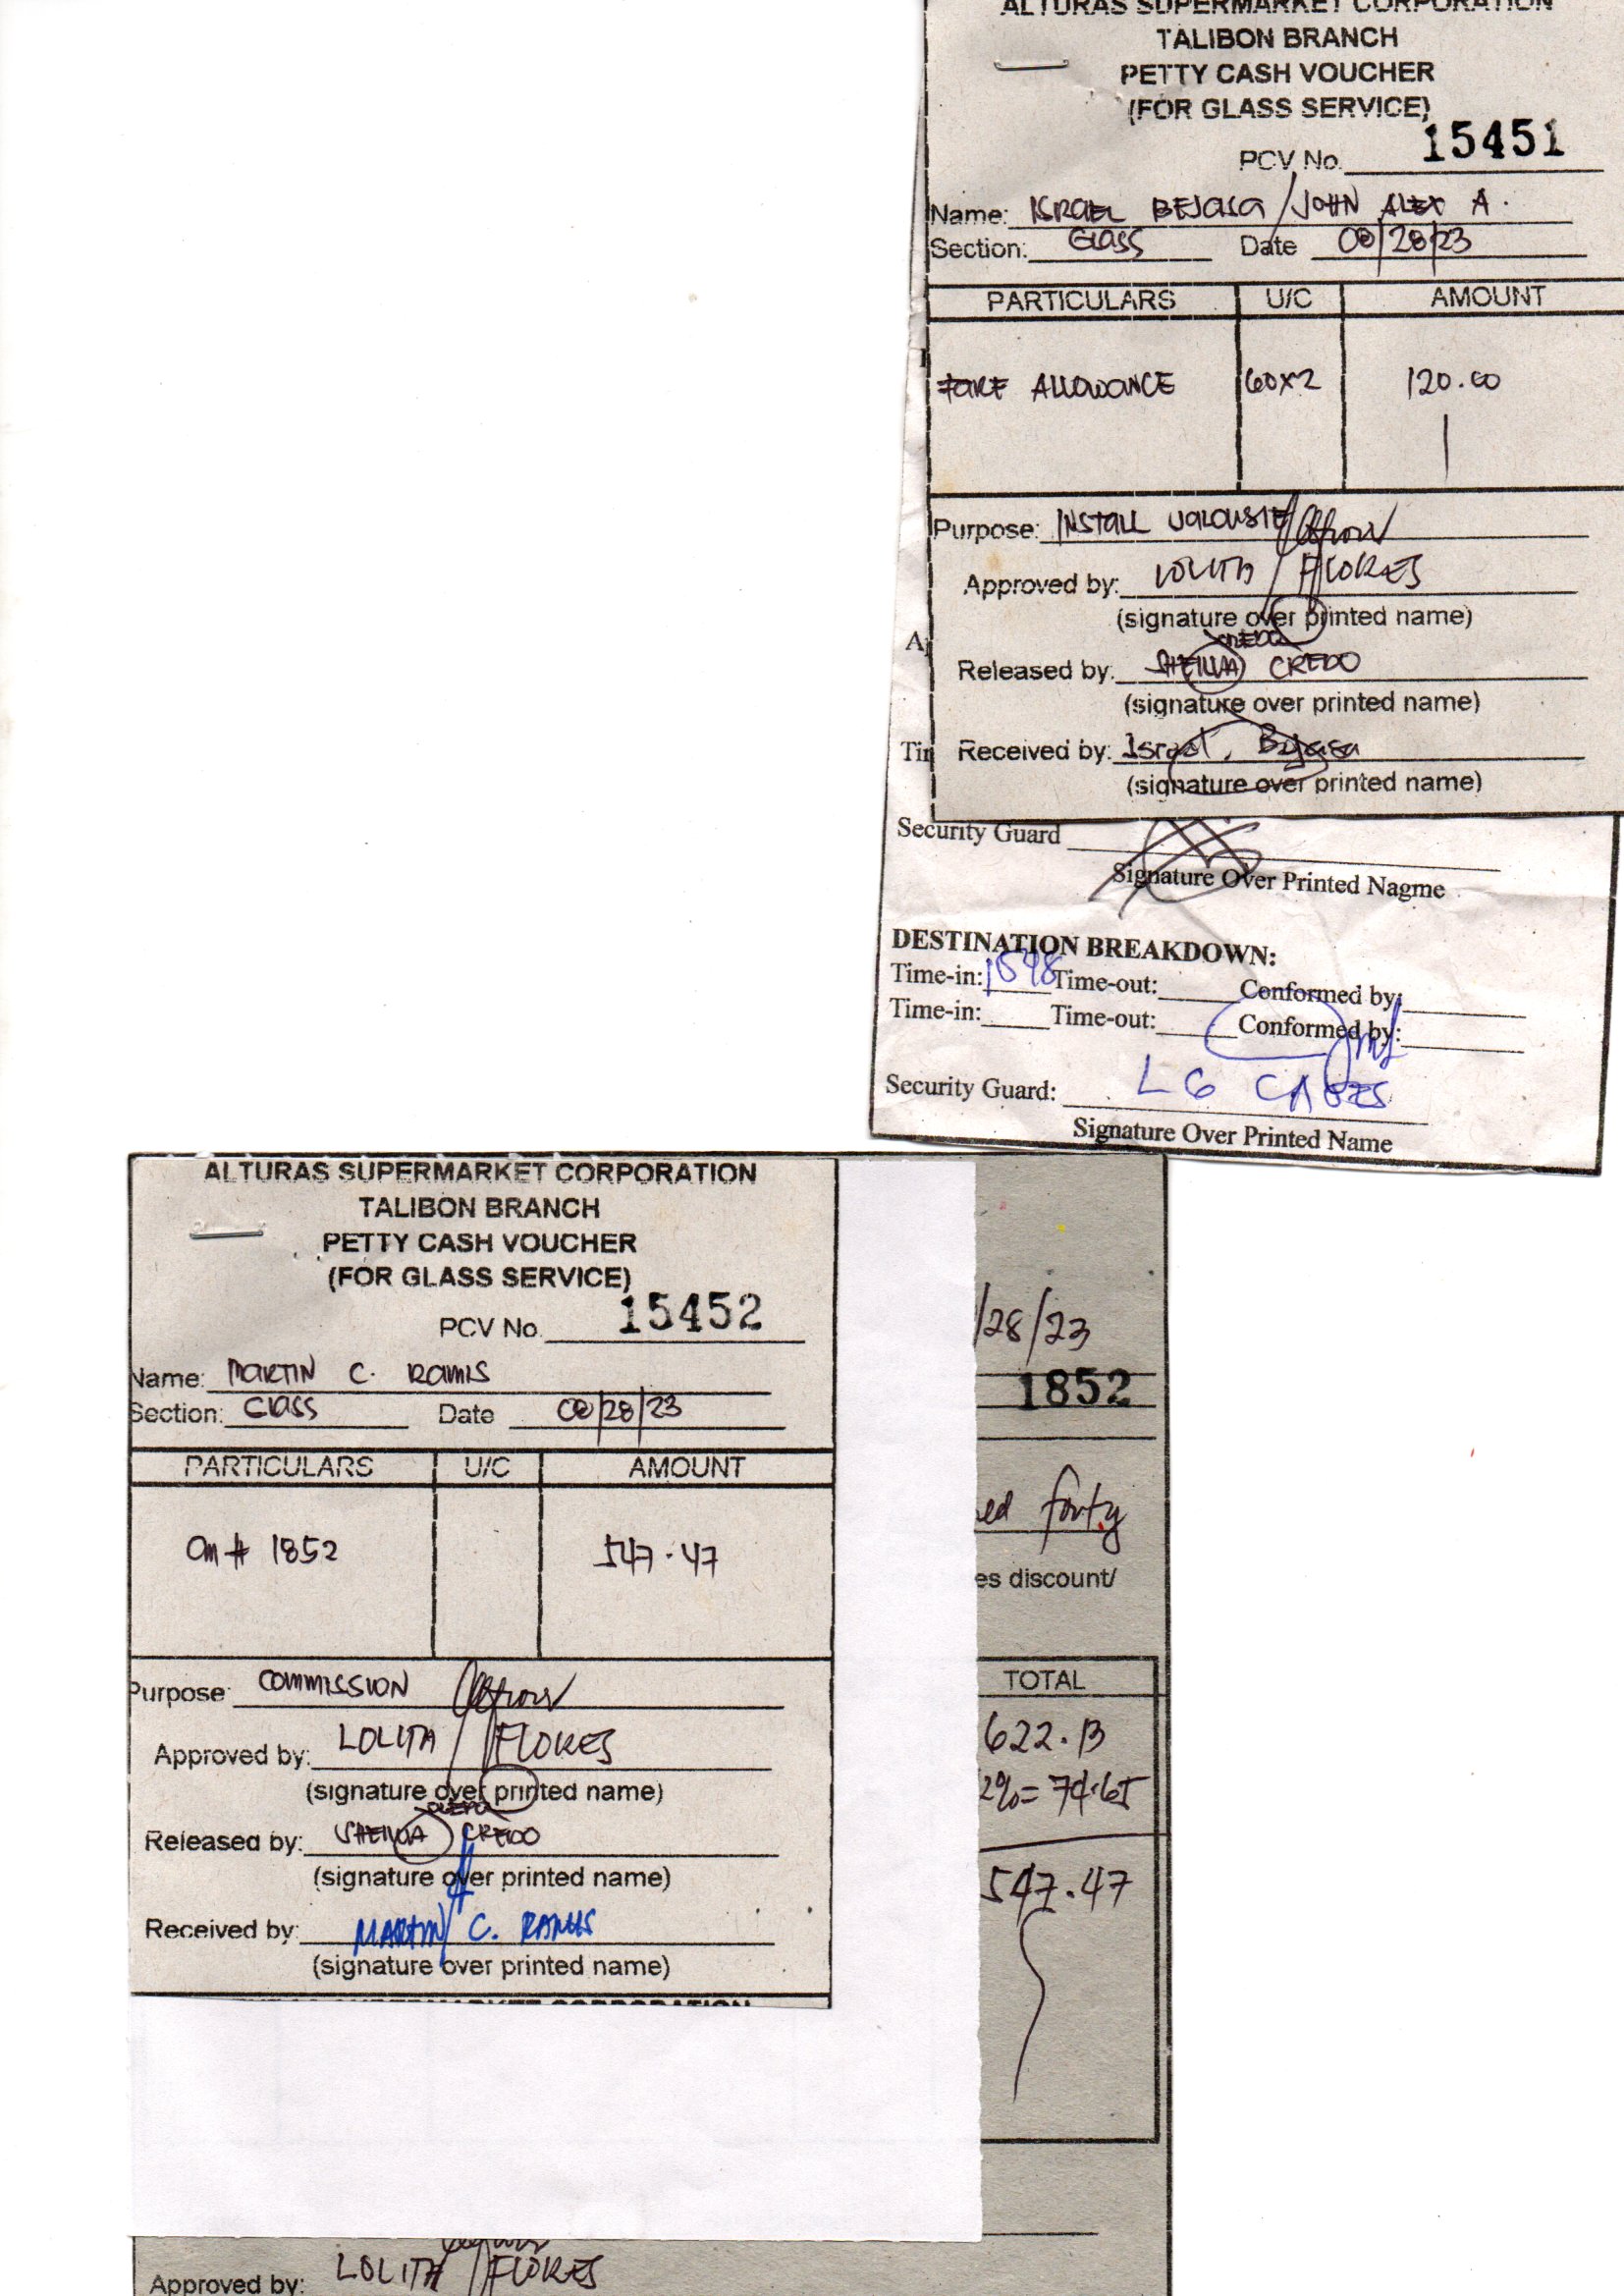 ALTURAS SUPERMARKET CORPORATION
TALIBON BRANCH
PETTY CASH VOUCHER
(FOR GLASS SERVICE)
PCV No. 15451
Name: ISRAEL BEJASA / JOHN ALEX A.
Section: GLASS Date 08/28/23
PARTICULARS U/C AMOUNT
FARE ALLOWANCE 60x2 120.00
Purpose: INSTALL JALOUSIE
Approved by: LOLITA FLORES
(signature over printed name)
Released by: SHEILLA CREDO
(signature over printed name)
Received by: Israel Bejasa
(signature over printed name)
Security Guard
Signature Over Printed Nagme
DESTINATION BREAKDOWN:
Time-in: 1548 Time-out: Conformed by:
Time-in: Time-out: Conformed by:
Security Guard: L G CABES
Signature Over Printed Name
ALTURAS SUPERMARKET CORPORATION
TALIBON BRANCH
PETTY CASH VOUCHER
(FOR GLASS SERVICE)
PCV No. 15452
Name: MARTIN C. RAMIS
Section: GLASS Date 08/28/23
PARTICULARS U/C AMOUNT
Om # 1852 547.47
Purpose: COMMISSION
Approved by: LOLITA FLORES
(signature over printed name)
Released by: SHEILLA CREDO
(signature over printed name)
Received by: MARTIN C. RAMIS
(signature over printed name)
/28/23
1852
ed forty
es discount/
TOTAL
622.13
2% = 74.65
547.47
Approved by: LOLITA FLORES